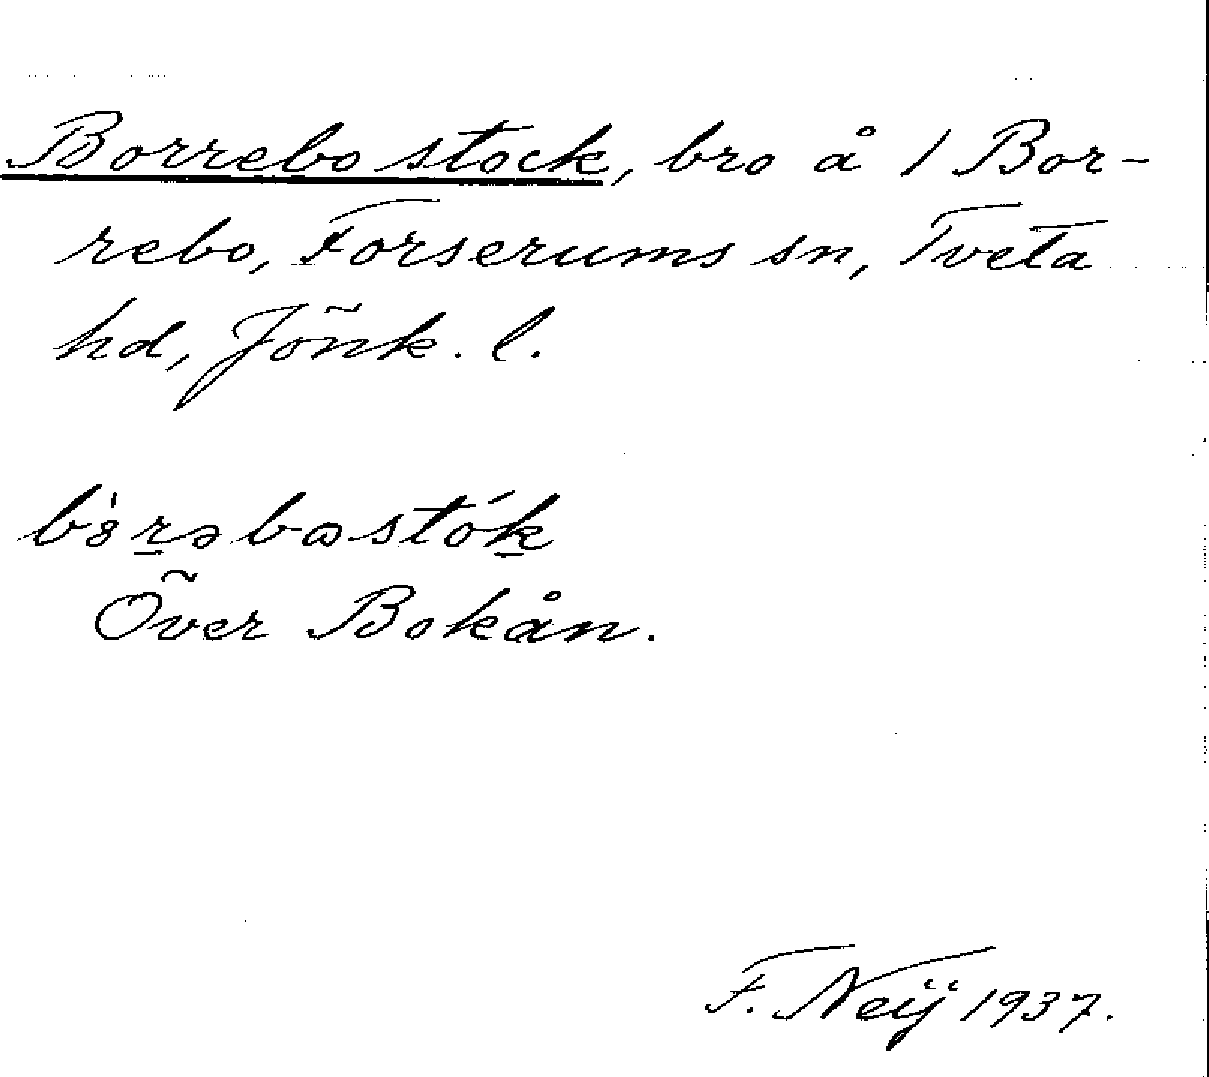 Borrebo stock, bro å 1 Bor-
rebo, Forserums sn, Tveta
hd, Jönk. l.
Över Bokån.
F. Neij 1937.